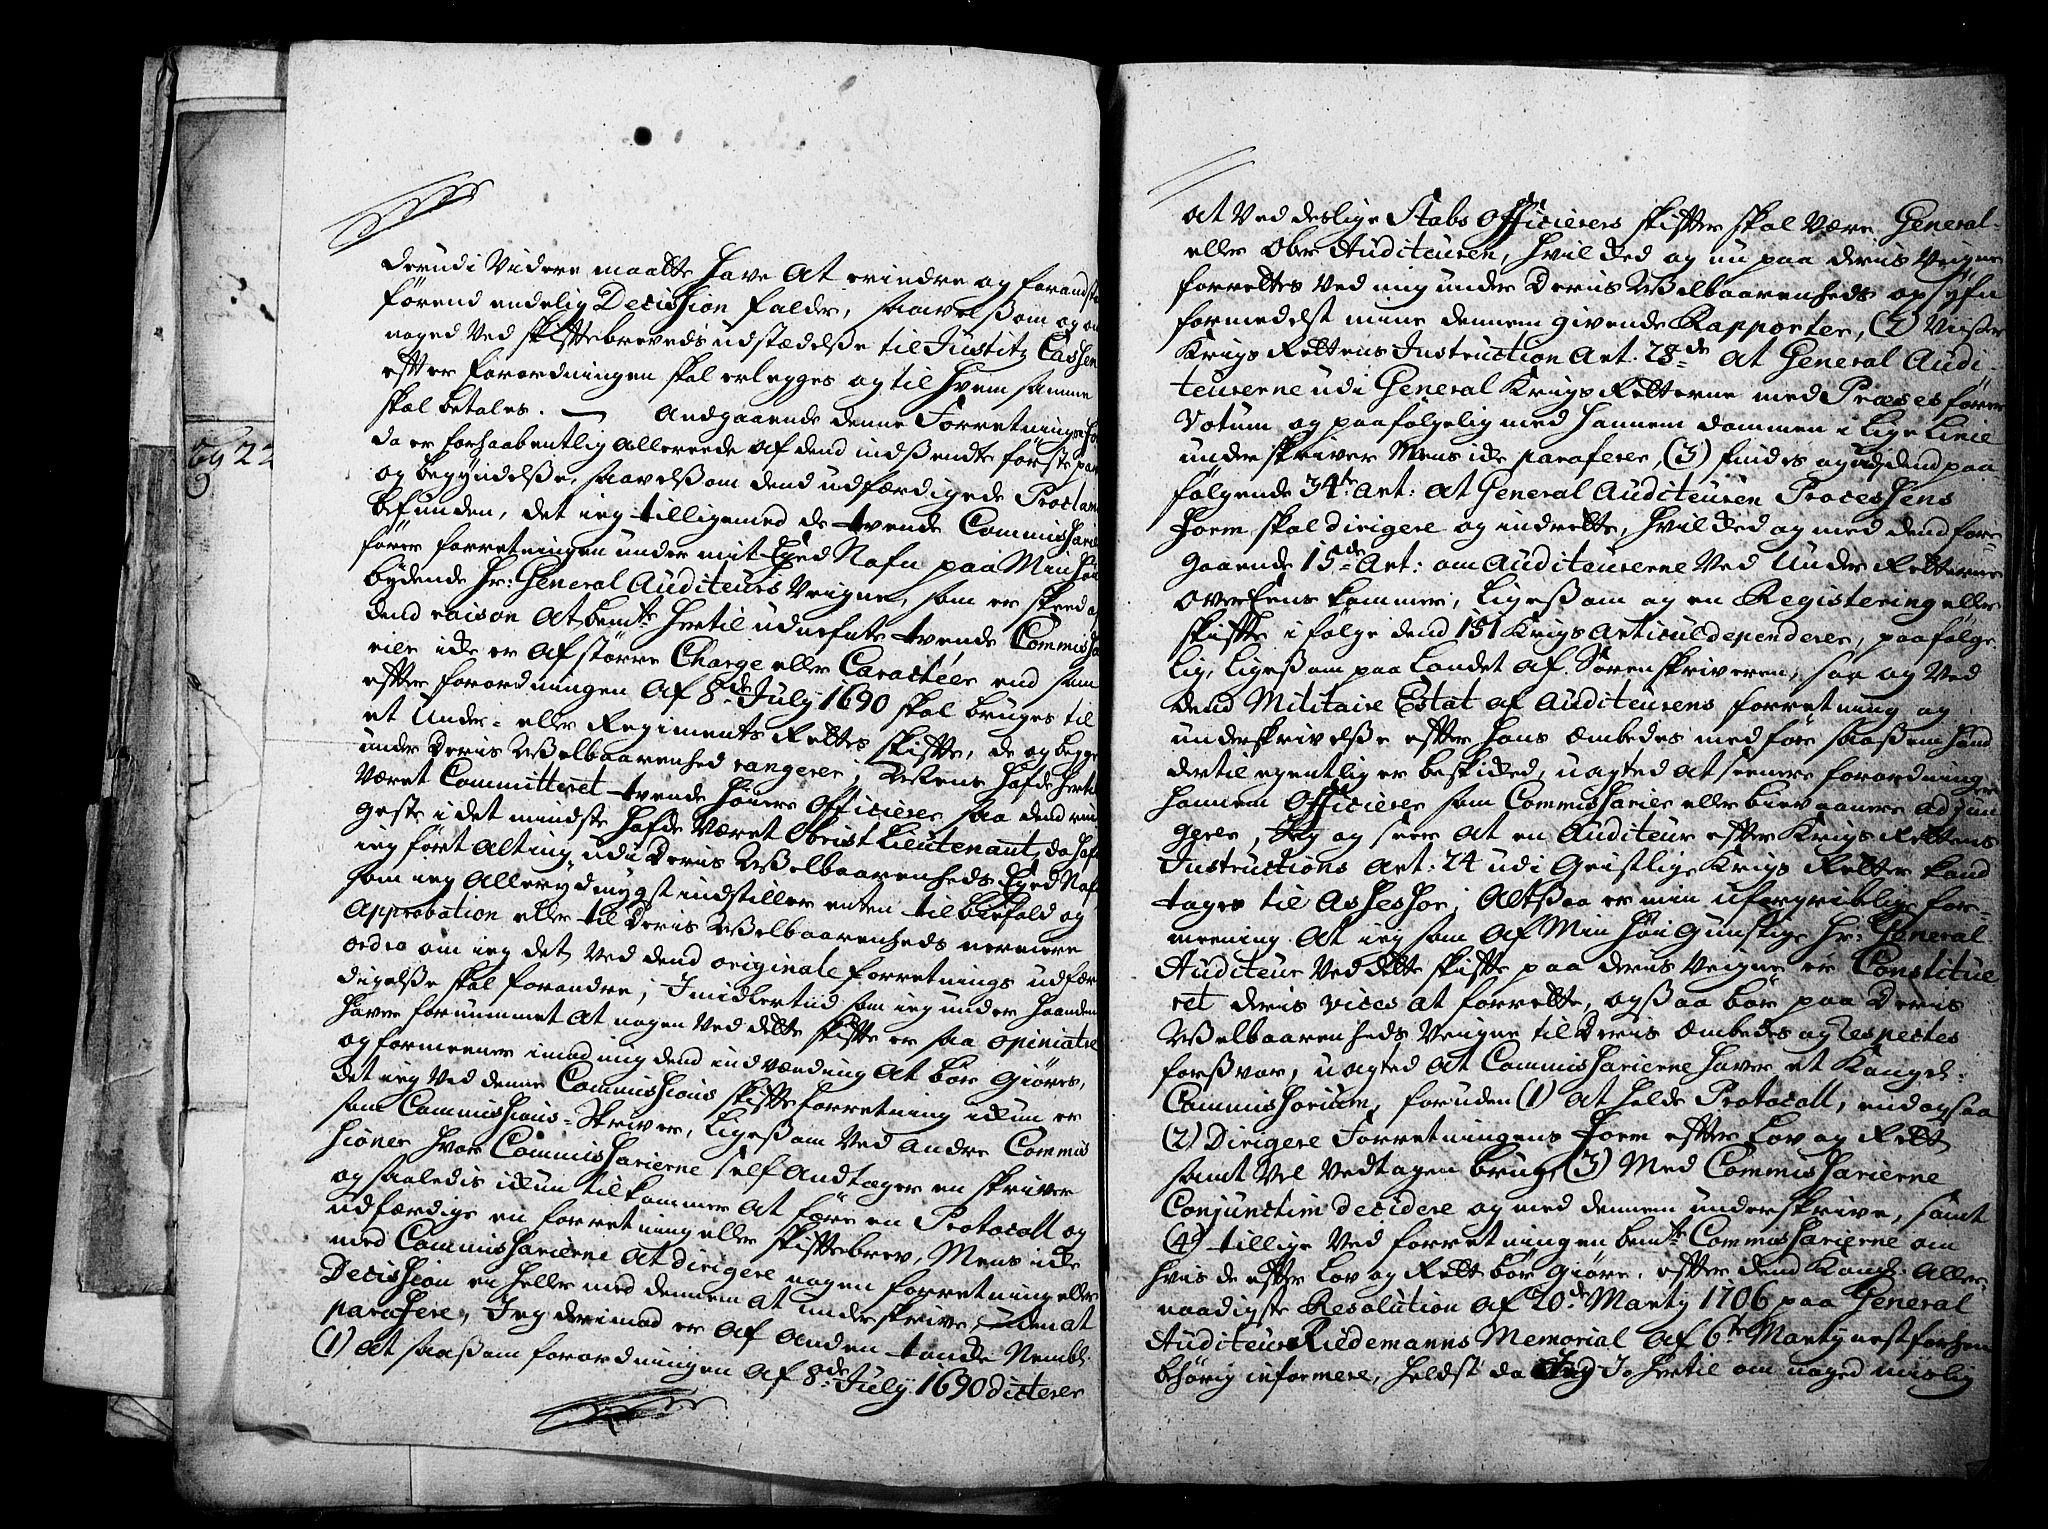 derudi Videre maatte have at erindre og forandst
førend endelig Decission falder, saavelsom og om
noged Ved skiftebreveds udstædelse til Justitz Cassen
efter forordningen skal erlegges og til hvem samme
skal betales. — Andgaaende denne Forretning
da er forhaabentlig allereede af dend indsendte første
og begyndelse, saavelsom dend udfærdigede Proclam
befunden, det ieg tilligemed de tvende Commissari
fører forretningen under mit Eged Nafn paa Min Høi
bydende Hr: General Auditeurs Veigne, som er skeed af
dend raison at bemte hertil udnefnte tvende Commissa
rier icke er af større Charge eller Caractéer end som
efter forordningen af 8de July 1690 skal bruges til
et Under- eller Regiments Rettes skifte, de og begge
under Deris Welbaarenhed rangerer; Ellers hafde hertil
Været Committeret tvende høiere Officierer saa dend rin
geste i det mindste hafde Været Obrist Lieutenant, da hafde
ieg ført alting udi Deris Welbaarenheds Eged Nafn
som ieg allerydmygst indstiller enten til biefald og
Approbation eller til Deris Welbaarenheds nermere
ordre om ieg det Ved dend originale forretnings udfær
digelse skal forandre; Imidlertiid som ieg under haanden
haver fornummet at nogen Ved dette skifte er saa opiniatre
og formeener imod mig dend indvending at bør giøres,
det ieg Ved denne Commissions skifteforretning ickun er
som Commissions-Skriver, ligesom Ved andre Commis
sioner hvor Commissarierne self andtager en skriver
og saaledis ickun tilkommer at føre en Protocoll og
udfærdige en forretning eller skiftebrev, Mens icke
med Commissarierne at dirigere nogen forretning eller
Decission ey heller med dennem at underskrive, uden at
parafere, Jeg derimod er af anden tancke Nembl:
(1) at saasom forordningen af 8de July 1690 dicterer
at Ved deslige Stabs Officierers skifter skal Være General-
eller Ober Auditeuren, hvilcked og nu paa deris Veigne
forrettes Ved mig under Deris Welbaarenheds opsyfn
formedelst mine dennem givende Rapporter, (2) Viiser
Krigs Rettens Instruction Art. 28de at General Audi-
teurerne udi General Krigs Retterne med Præses fører
Votum og paafølgelig med hannem dommen i Lige Linie
underskriver Mens icke paraferer, (3) findes og udj dend paa
følgende 34te Art: at General Auditeuren Processens
form skal dirigere og indrette, hvilcked og med dend fore-
gaaende 15de Art: om Auditeurerne Ved Under Retterne
overEens kommer; Ligesom og en Registering eller
skifte i følge dend 151 Krigs Articul dependerer, paafølge
lig, ligesom paa Landet af Sorenskriveren, saa og Ved
dend Militaire Estat af Auditeurens forretning og
underskrivelse efter hans Embedes medføre saasom hand
dertil egentlig er beskicked, uagted at seenere forordninger
hannem Officierer som Commissarier eller bievaanere adjun
gerer, Jeg og seer at en Auditeur efter Krigs Rettens
Instructions Art: 24 udi Geistlige Krigs Retter kand
tages til Assessor; Altsaa er min uforgribelige for-
meening at ieg som af Min Høigunstige Hr: General
Auditeur Ved dette skifte paa deris Veigne er Constitue
ret deris vices at forrette, ogsaa bør paa Deris
Welbaarenheds Veigne til Deris Embedes og Respectes
forsvar, uagted at Commissarierne haver et Kongel:
Commissorium, foruden (1) at holde Protocoll, end ogsaa
(2) Dirigere Forretningens form efter Lov og Rett
samt Vel Vedtagen brug, (3) Med Commissarierne
Conjunctim decidere og med dennem underskrive, samt
(4) tillige Ved forretningen bemte Commissarierne om
hvis de efter Lov og Rett bør giøre, efter dend Kongl: Aller
naadigste Resolution af 20de Marty 1706 paa General
Auditeur Riedemanns Memorial af 6te Marty nestforhen
behørig informere, heldst da Jeg Jo hertil om noged mislig